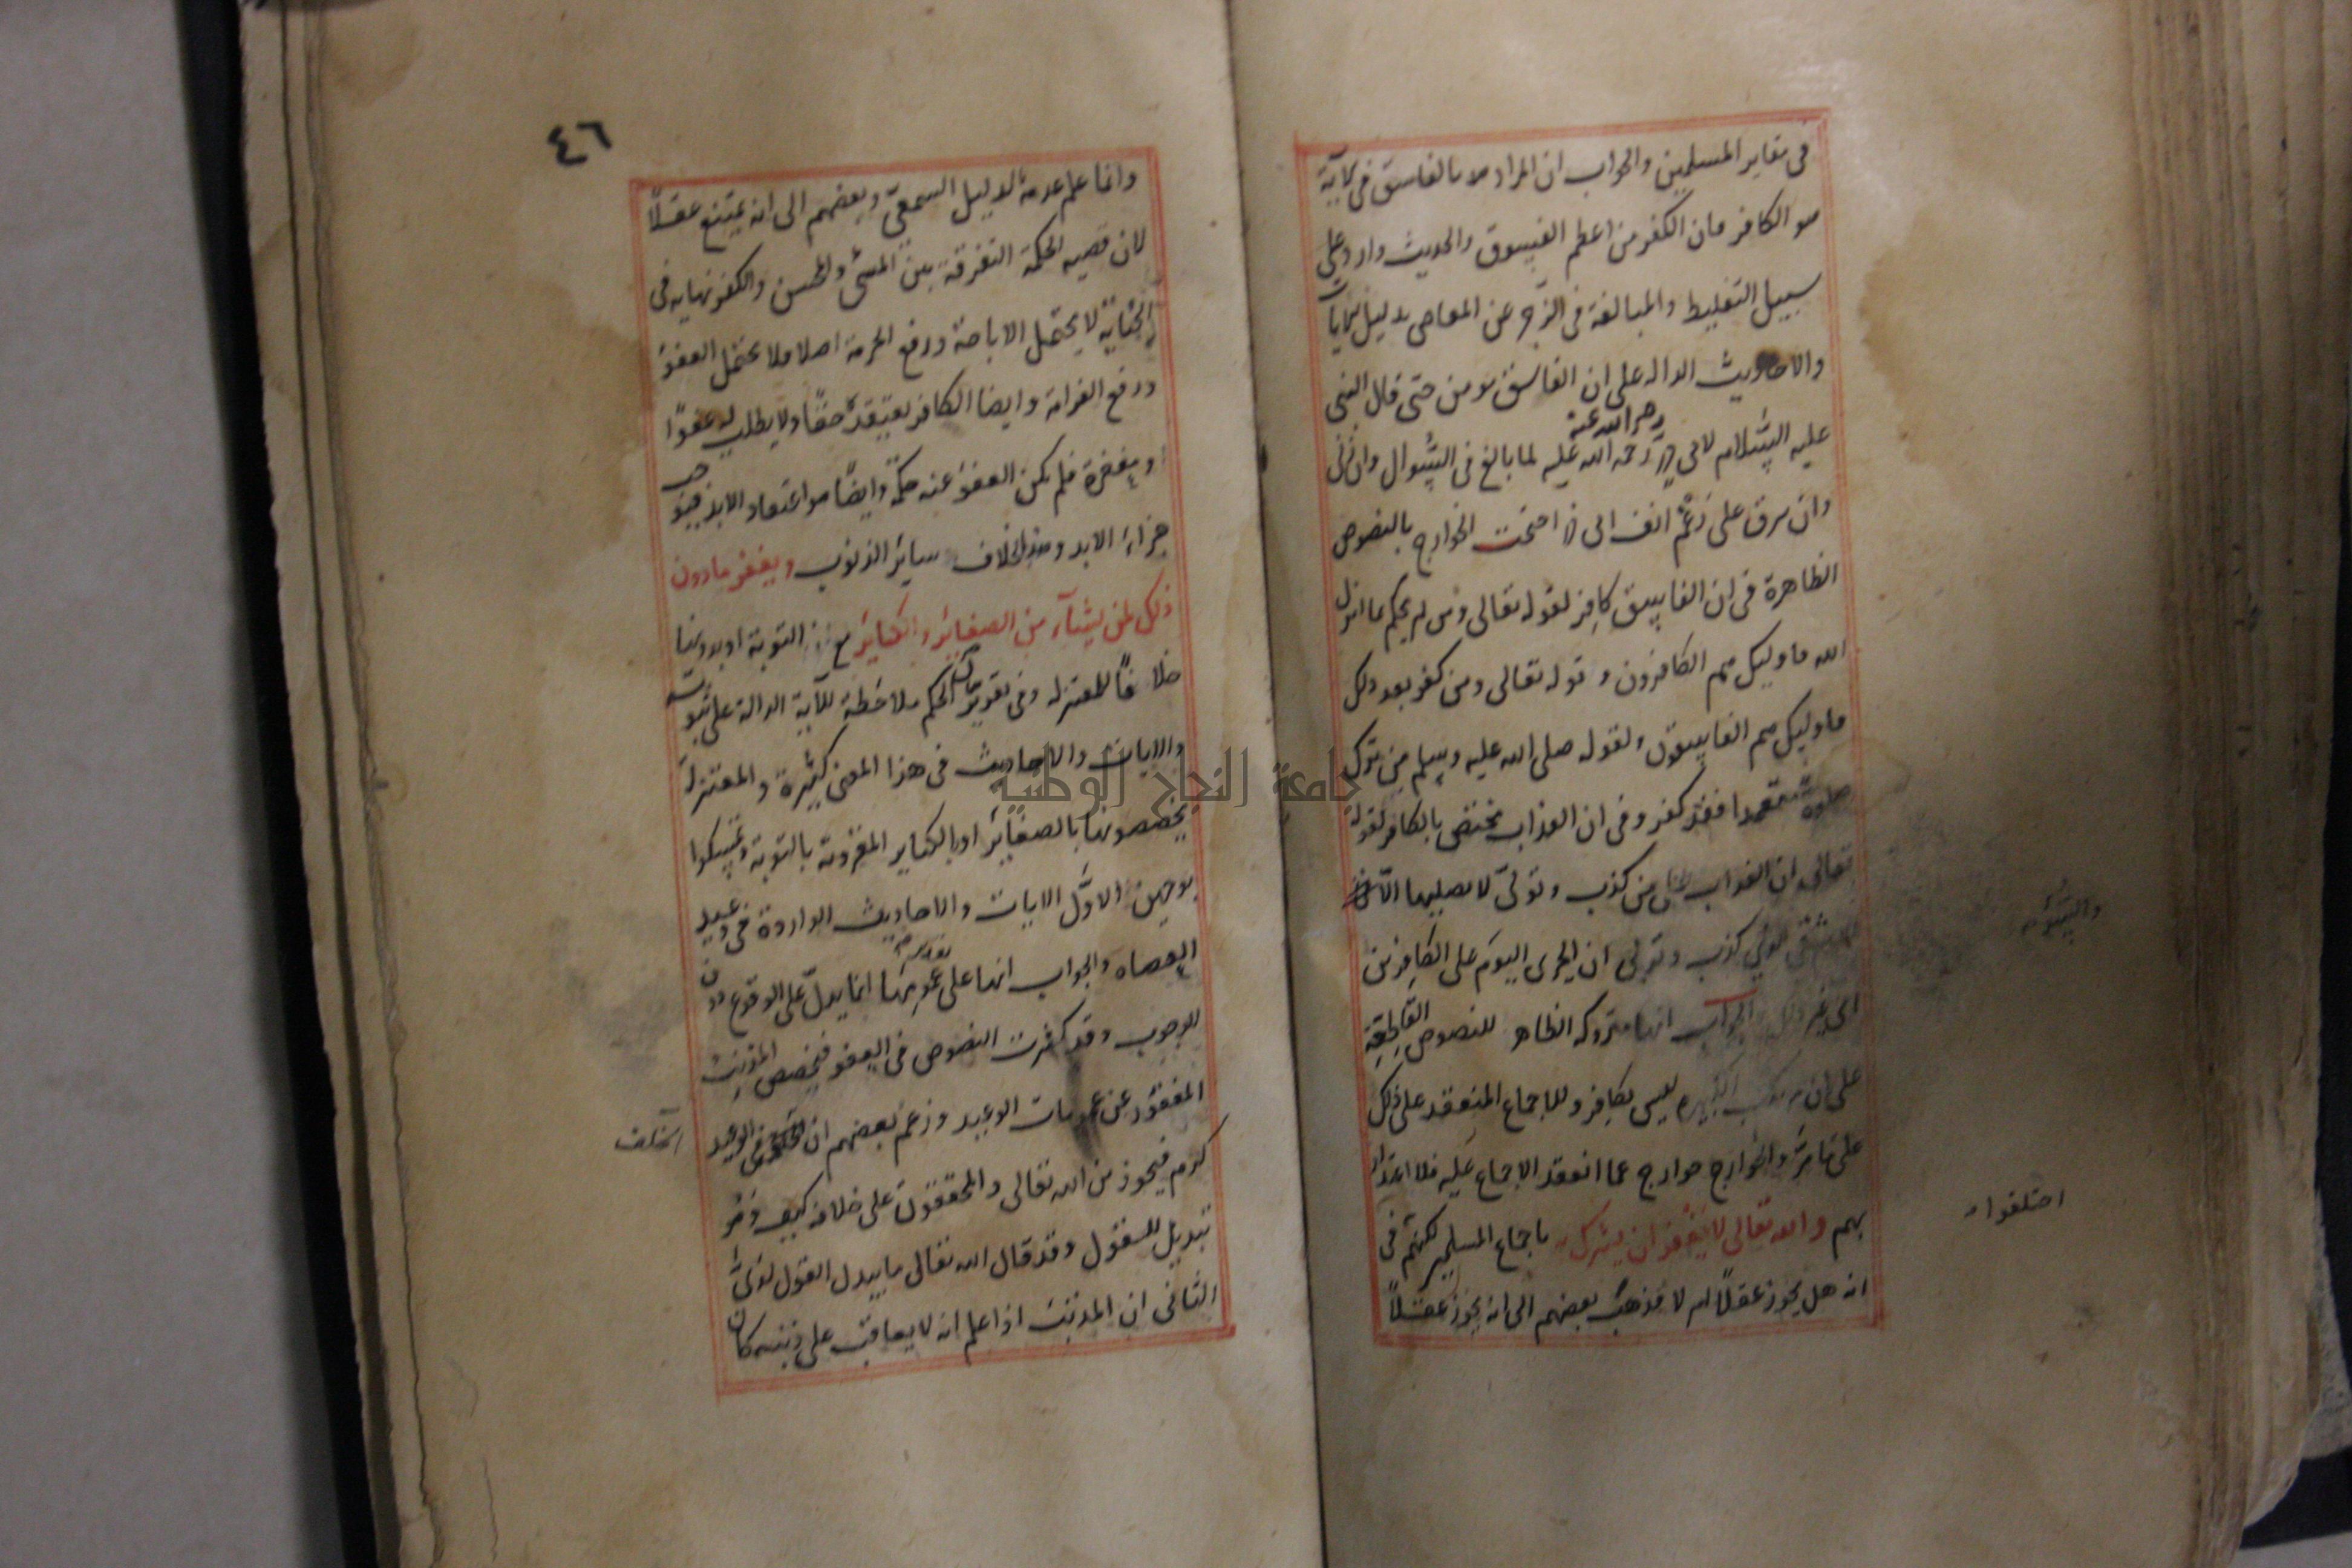 فى مقابر المسلمين والجواب ان المراد بالفاسق فى الآية
هو الكافر فان الكفر من اعظم الفسوق والحديث وارد على
سبيل التغليط والمبالغة فى الزجر عن المعاصى بدليل الايات
والاحاديث الداله على ان الفاسق مومن حتى قال النبى
عليه السلام لابى ذر رحمة الله عليه لما بالغ فى السوال وان زنى
رضى الله عنه
وان سرق على رغم انف ابى ذر احتجت الخوارج بالنصوص
الظاهرة فى ان الفاسق كافر لقوله تعالى ومن لم يحكم بما انزل
الله فاوليك هم الكافرون وقوله تعالى ومن كفر بعد ذلك
فاوليك هم الفاسقون ولقوله صلى الله عليه وسلم من ترك
صلوة متعمدا فقد كفر وفى ان العذاب مختص بالكافر لقوله
تعالى ان العذاب على من كذب وتولى لا يصليها الا
الاشقى الذي كذب وتولى ان الخزى اليوم على الكافرين
الى غير ذلك والجواب انها متروكه الظاهر للنصوص القاطعة
على ان مرتكب الكبيره ليس بكافر وللاجماع المنعقد على ذلك
على ما مر والخوارج خوارج عما انعقد الاجماع عليه فلا اعتداد
بهم والله تعالى لا يغفر ان يشرك به باجماع المسلمين لكنهم فى
انه هل يجوز عقلًا ام لا فذهب بعضهم الى انه يجوز عقلًا
والسوء
اختلفوا
٤٦
وانما علم عدمه بالدليل السمعى وبعضهم الى انه يمتنع عقلًا
لان قضيه الحكمة التفرقة بين المسئ والمحسن والكفر نهايه فى
الجناية لا يحتمل الاباحة ورفع الحرمة اصلا فلا يحتمل العفو
ورفع الغرامة وايضا الكافر يعتقده حقًا ولا يطلب له عفوًا
او مغفرة فلم يكن العفو عنه حكمة وايضًا هو اعتقاد الابد فيوجب
جزاء الابد وهذا بخلاف ساير الذنوب ويغفر مادون
ذلك لمن يشآء من الصغاير والكباير مع التوبة او بدونها
خلافًا للمعتزله وفى تقرير الحكم ملاحظة للآية الدالة على ثبوته
والايات والاحاديث فى هذا المعنى كثيرة والمعتزلة
يخصصونها بالصغاير او بالكباير المقرونة بالتوبة وتمسكوا
بوجهين الاوّل الايات والاحاديث الواردة فى وعيد
العصاه والجواب انها على عمومها انما يدلّ على الوقوع دون
الوجوب وقد كثرت النصوص فى العفو فيخصص المذنب
المغفور عن عمومات الوعيد وزعم بعضهم ان الخلف فى الوعيد
الخلف
كرم فيجوز من الله تعالى والمحققون على خلافه كيف وهو
تبديل للقول وقد قال الله تعالى ما يبدل القول لدىّ
الثانى ان المذنب اذا علم انه لا يعاقب على ذنبه كان
جامعة النجاح الوطنية